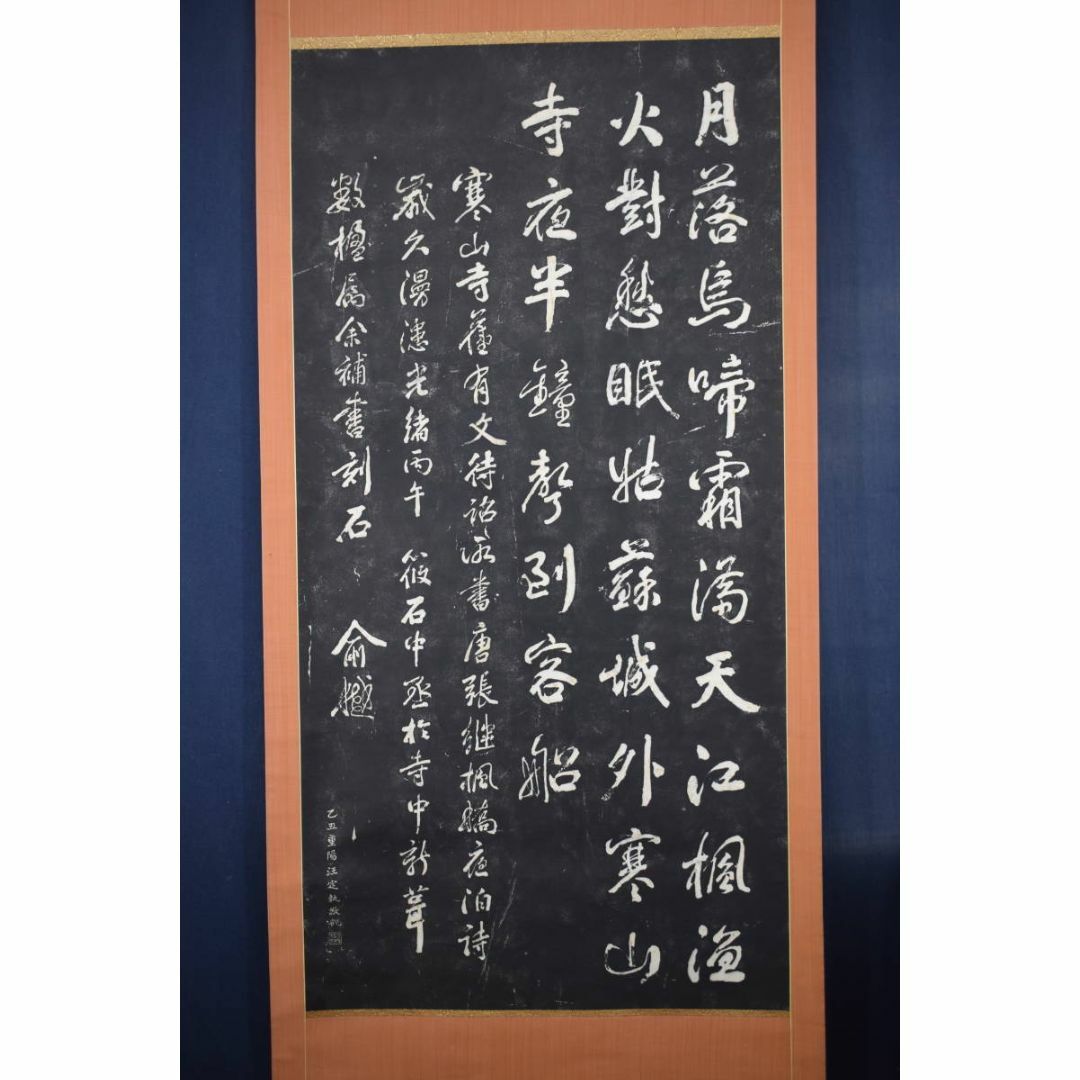 月落烏啼霜滿天江楓漁
火對愁眠姑蘇城外寒山
寺夜半鐘聲到客船
寒山寺舊有文待詔所書唐張繼楓橋夜泊詩
歲久漫漶光緒丙午 筱石中丞於寺中新葺
數楹屬余補書刻石〻 俞樾
乙丑重陽汪定執敬觀